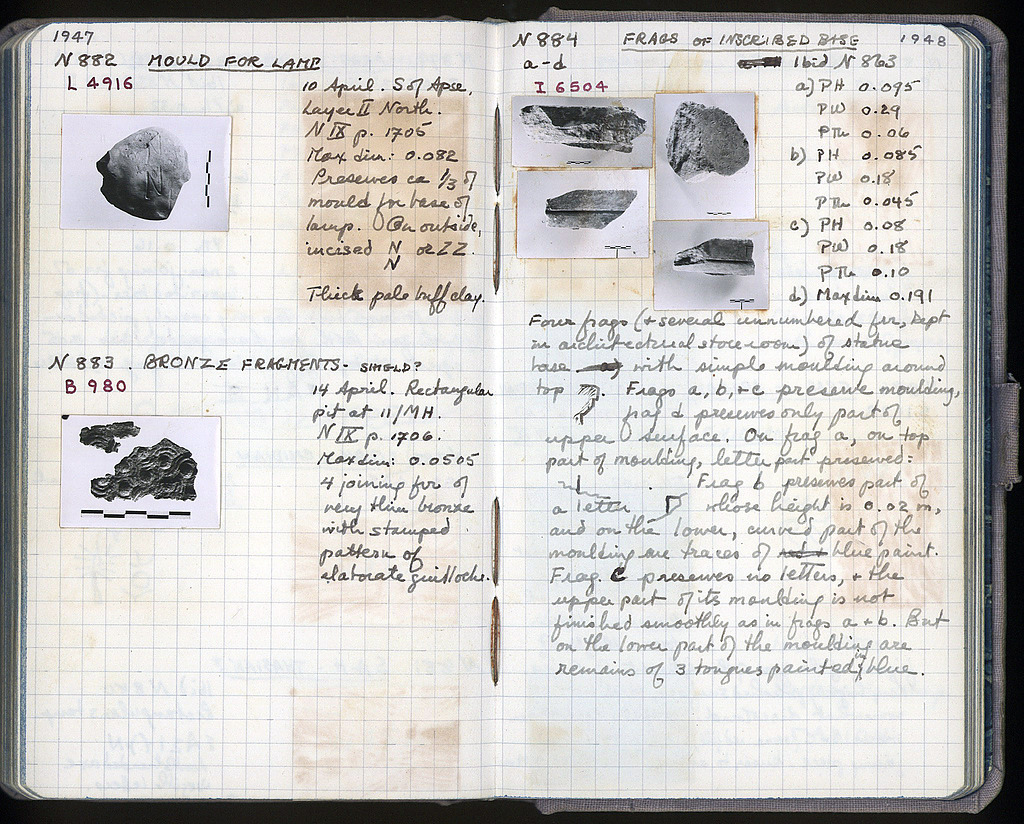 1947
N 882 MOULD FOR LAMP
L 4916
10 April. S of Apse,
Layer II North.
N IX p. 1705
Max dim: 0.082
Preserves ca 1/3 of
mould for base of
lamp. On outside,
incised N or ZZ.
N
Thick pale buff clay.
N 883. BRONZE FRAGMENTS - SHIELD?
B 980
14 April. Rectangular
pit at 11/MH.
N IX p. 1706.
Max dim: 0.0505
4 joining frr of
very thin bronze
with stamped
pattern of
elaborate guilloche.
1948
N 884 FRAGS OF INSCRIBED BASE
a-d Ibid N 863
I 6504
a) PH 0.095
PW 0.29
PTh 0.06
b) PH 0.085
PW 0.18
PTh 0.045
c) PH 0.08
PW 0.18
PTh 0.10
d) Max dim 0.191
Four frags (+ several unnumbered frr, kept
in architectural storeroom) of statue
base with simple moulding around
top . Frags a, b, + c preserve moulding,
frag d preserves only part of
upper surface. On frag a, on top
part of moulding, letter part preserved:
. Frag b preserves part of
a letter whose height is 0.02 m,
and on the lower, curved part of the
moulding are traces of red + blue paint.
Frag. C preserves no letters, + the
upper part of its moulding is not
finished smoothly as in frags a + b. But
on the lower part of the moulding are
remains of 3 tongues painted in blue.